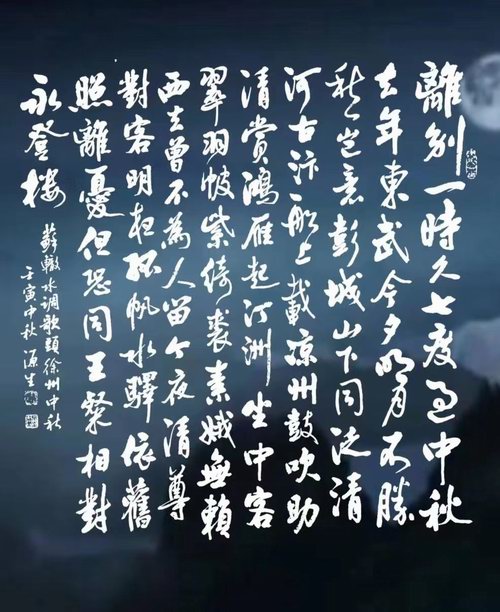 離別一時久七度過中秋
去年東武今夕明月不勝
愁豈意彭城山下同泛清
河古汴船上載涼州鼓吹助
清賞鴻雁起汀洲坐中客
翠羽帔紫綺裘素娥無賴
西去曾不為人留今夜清尊
對客明夜孤帆水驛依舊
照離憂但恐同王粲相對
永登樓
蘇轍水调歌頭徐州中秋
壬寅中秋源生